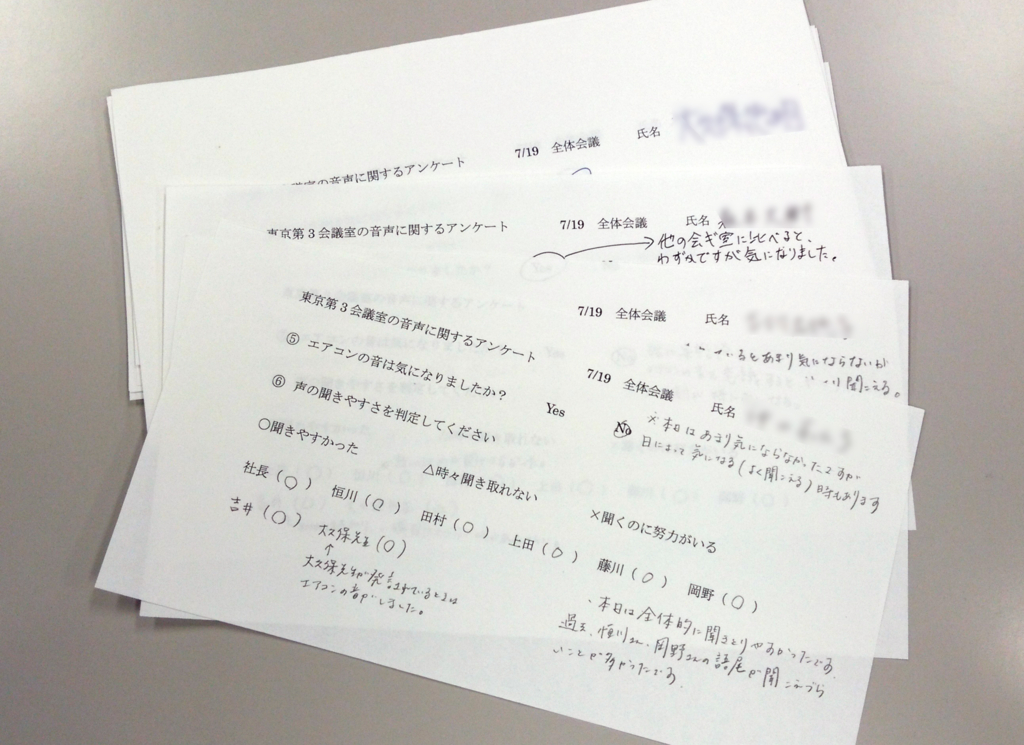 7/19 全体会議 氏名
議室の音声に関するアンケート
東京第3会議室の音声に関するアンケート 7/19 全体会議 氏名
他の会ギ室に比べると、
わずかですが気になりました。
7/19 全体会議 氏名
いるとあまり気にならないが
聞こえる。
東京第3会議室の音声に関するアンケート 7/19 全体会議 氏名
⑤ エアコンの音は気になりましたか? Yes No
※本日はあまり気にならなかったですが
日によって気になる(よく聞こえる)時もあります
⑥ 声の聞きやすさを判定してください
○聞きやすかった △時々聞き取れない ×聞くのに努力がいる
社長(○) 恒川(○) 田村(○) 上田(○) 藤川(○) 岡野(○)
吉井(○) 大久保先生(○)
↑
大久保先生が発言されているときは
エアコンの音がしました。
・本日は全体的に聞きとりやすかったです。
過去、恒川さん、岡野さんの語尾が聞こえづら
いことが多かったです。